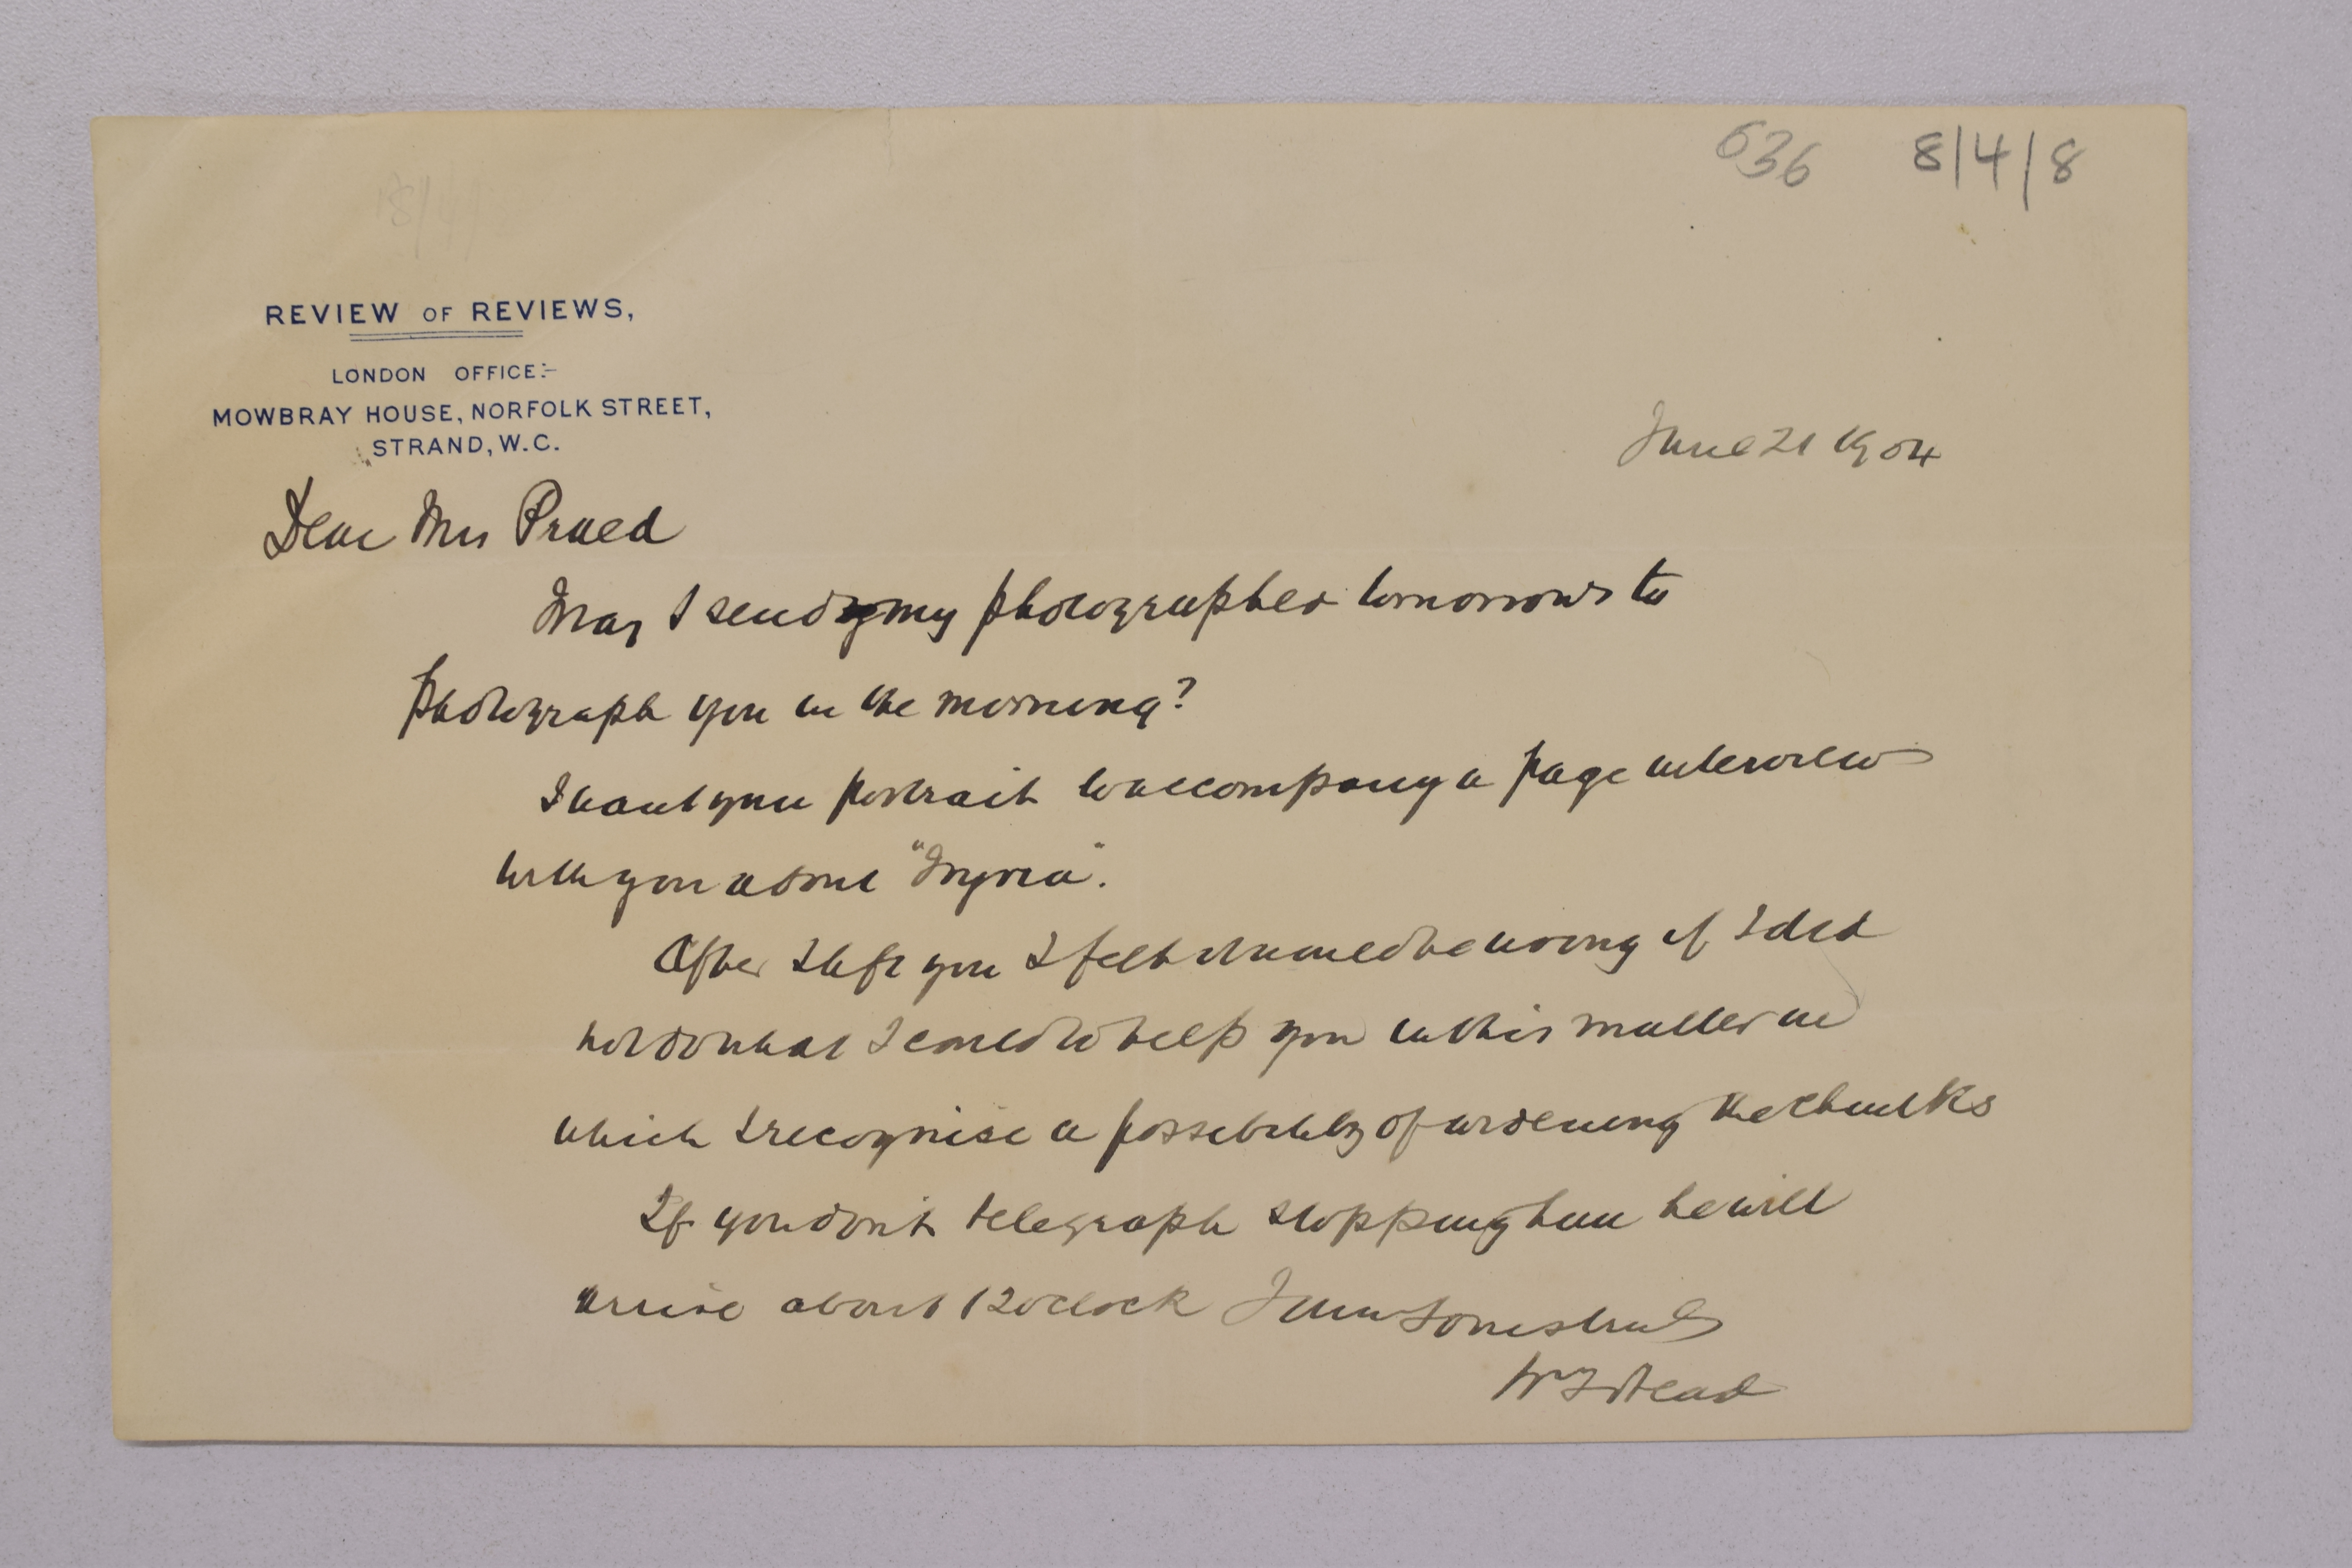 636 8/4/8
REVIEW OF REVIEWS,
LONDON OFFICE:-
MOWBRAY HOUSE, NORFOLK STREET,
STRAND, W.C.
June 21 1904
Dear Mrs Praed
May I send my photographer tomorrow to
photograph you in the morning?
I want your portrait to accompany a page interview
with you about "Nyria".
After I left you I felt I should be wrong if I did
not do what I could to help you in this matter in
which I recognise a possibility of widening the chinks
If you don't telegraph stopping him he will
arrive about 12 oclock I am Yours truly
W T Stead